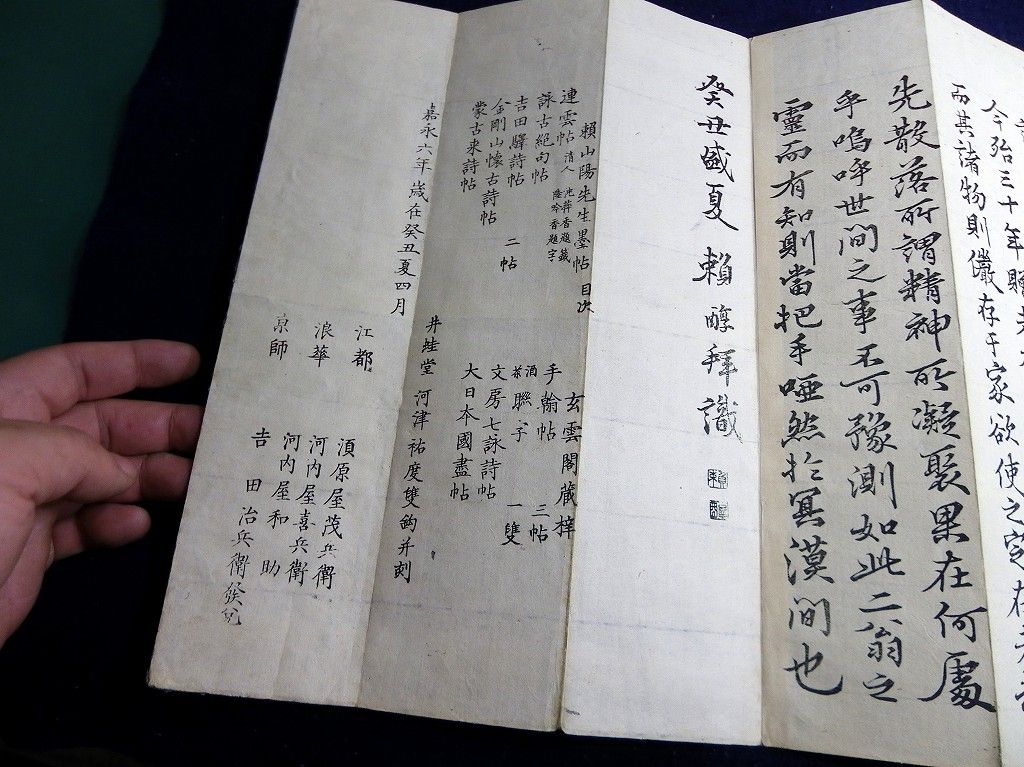 今殆三十年
而其諸物則儼存于家欲使之定在
先散落所謂精神所凝聚果在何處
乎嗚呼世間之事不可豫測如此二翁之
靈而有知則當把手啞然於冥漠間也
癸丑盛夏 賴醇拜識
賴山陽先生墨帖目次 玄雲閣藏梓
連雲帖 清人 沈萍香題籤 陸吟香題字 手翰帖 三帖
詠古絕句帖 酒茶聯子 一雙
吉田驛詩帖 文房七詠詩帖
金剛山懷古詩帖 二帖 大日本國盡帖
蒙古來詩帖
嘉永六年歲在癸丑夏四月 井蛙堂 河津祐度雙鈎并刻
江都 須原屋茂兵衛
浪華 河内屋喜兵衛
河内屋和助
京師 吉田治兵衛發兌